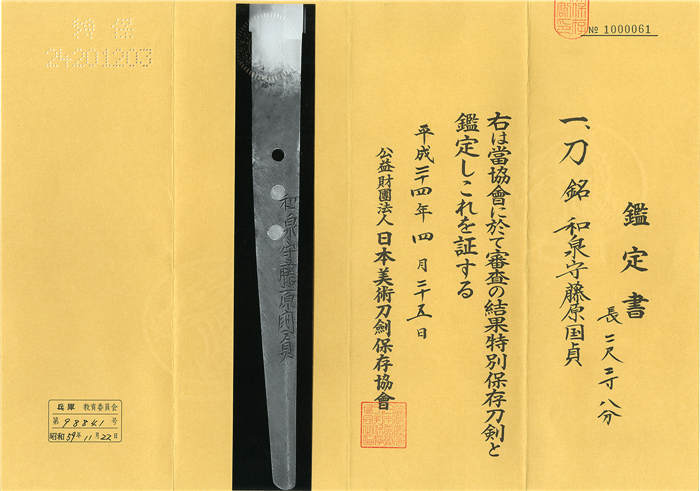 № 1000061
鑑定書
一、刀 銘 和泉守藤原国貞
長 二尺二寸八分
右は當協會に於て審査の結果特別保存刀剣と
鑑定しこれを証する
平成二十四年四月二十五日
公益財團法人 日本美術刀劍保存協會
和泉守藤原國貞
特保
24201203
兵庫 教育委員会
第98841号
昭和39年11月22日